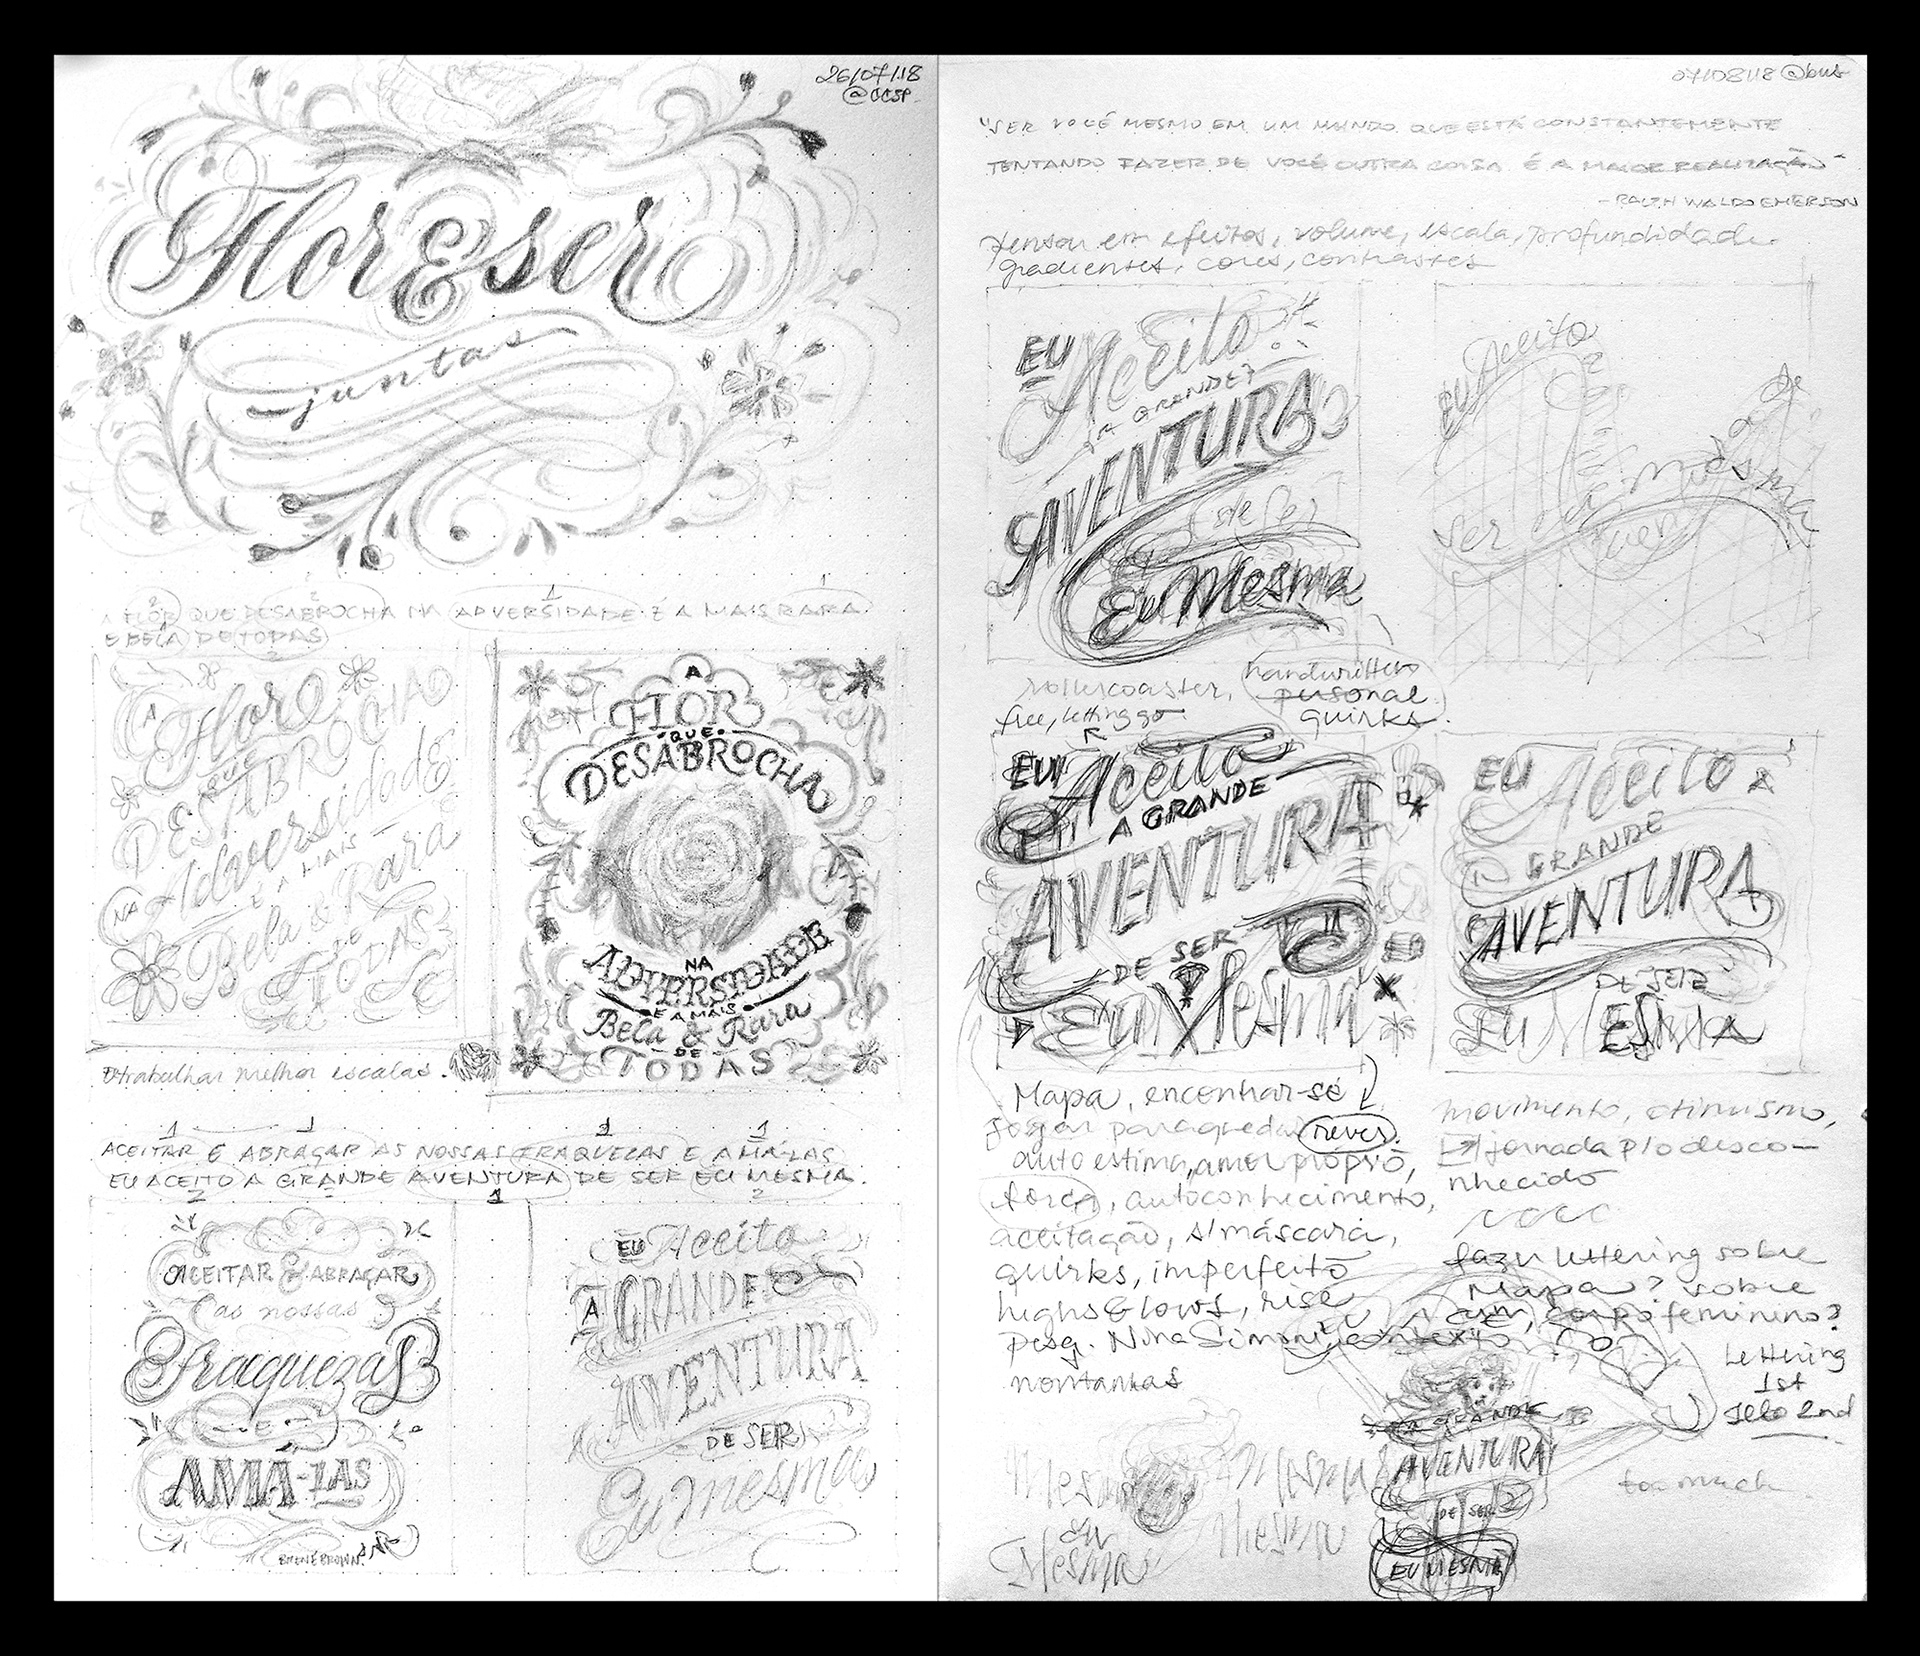 26/07/18
@CCSP
FlorEser
juntas
A FLOR QUE DESABROCHA NA ADVERSIDADE É A MAIS RARA
E BELA DE TODAS
A
Flor
QUE
DESABROCHA
NA Adversidade
É A MAIS
Bela & Rara
DE
TODAS
A
FLOR
QUE
DESABROCHA
NA
ADVERSIDADE
E A MAIS
Bela & Rara
DE
TODAS
trabalhar melhor escalas.
ACEITAR E ABRAÇAR AS NOSSAS FRAQUEZAS E AMÁ-LAS
EU ACEITO A GRANDE AVENTURA DE SER EU MESMA.
ACEITAR & ABRAÇAR
as nossas
fraquezas
E
AMÁ-LAS
BRENÉ BROWN
EU Aceito
A GRANDE
AVENTURA
DE SER
Eu mesma
07/08/18 @bus
"SER VOCÊ MESMO EM UM MUNDO QUE ESTÁ CONSTANTEMENTE
TENTANDO FAZER DE VOCÊ OUTRA COISA É A MAIOR REALIZAÇÃO"
- RALPH WALDO EMERSON
pensar em efeitos, volume, escala, profundidade
gradientes, cores, contrastes
EU Aceito
A GRANDE
AVENTURA
de ser
Eu Mesma
Eu Aceito
rollercoaster,
free, letting go
handwritten
personal
quirks.
EU Aceito
A GRANDE
AVENTURA
DE SER
Eu Mesma
EU Aceito A
GRANDE
AVENTURA
DE SER
EU MESMA
Mapa, encontrar-se
jogar paraquedas
auto estima, amor próprio,
força, autoconhecimento,
aceitação, s/ máscara,
quirks, imperfeito
highs & lows, rise
pesq. Nina Simone, contexto
montanhas
movimento, otimismo,
jornada p/ o desco-
nhecido
fazer lettering sobre
Mapa? sobre
corpo feminino?
Lettering
1st
Ilo 2nd
too much
A GRANDE
AVENTURA
DE SER
EU MESMA
Mesma
Mesma
Eu
Mesma
Mesma